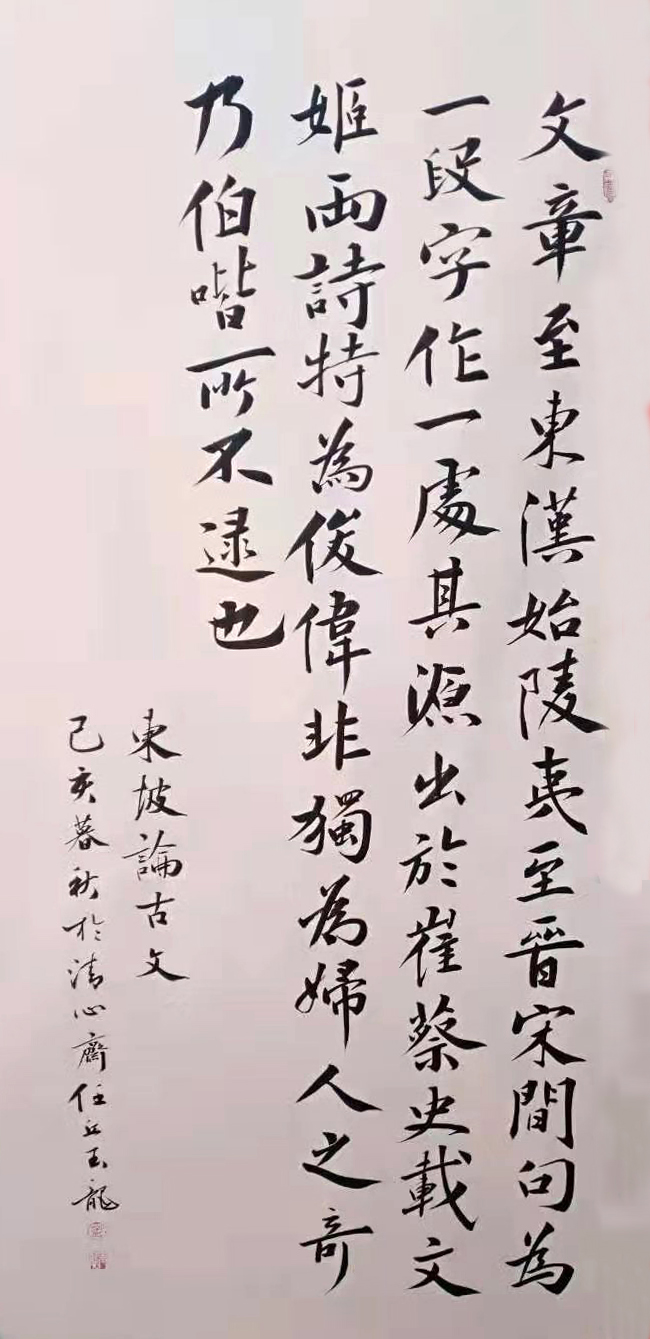 文章至東漢始陵夷至晉宋間句為
一段字作一處其源出於崔蔡史載文
姬兩詩特為俊偉非獨為婦人之奇
乃伯喈所不逮也
東坡論古文
己亥暮秋於清心齋任丘玉龍